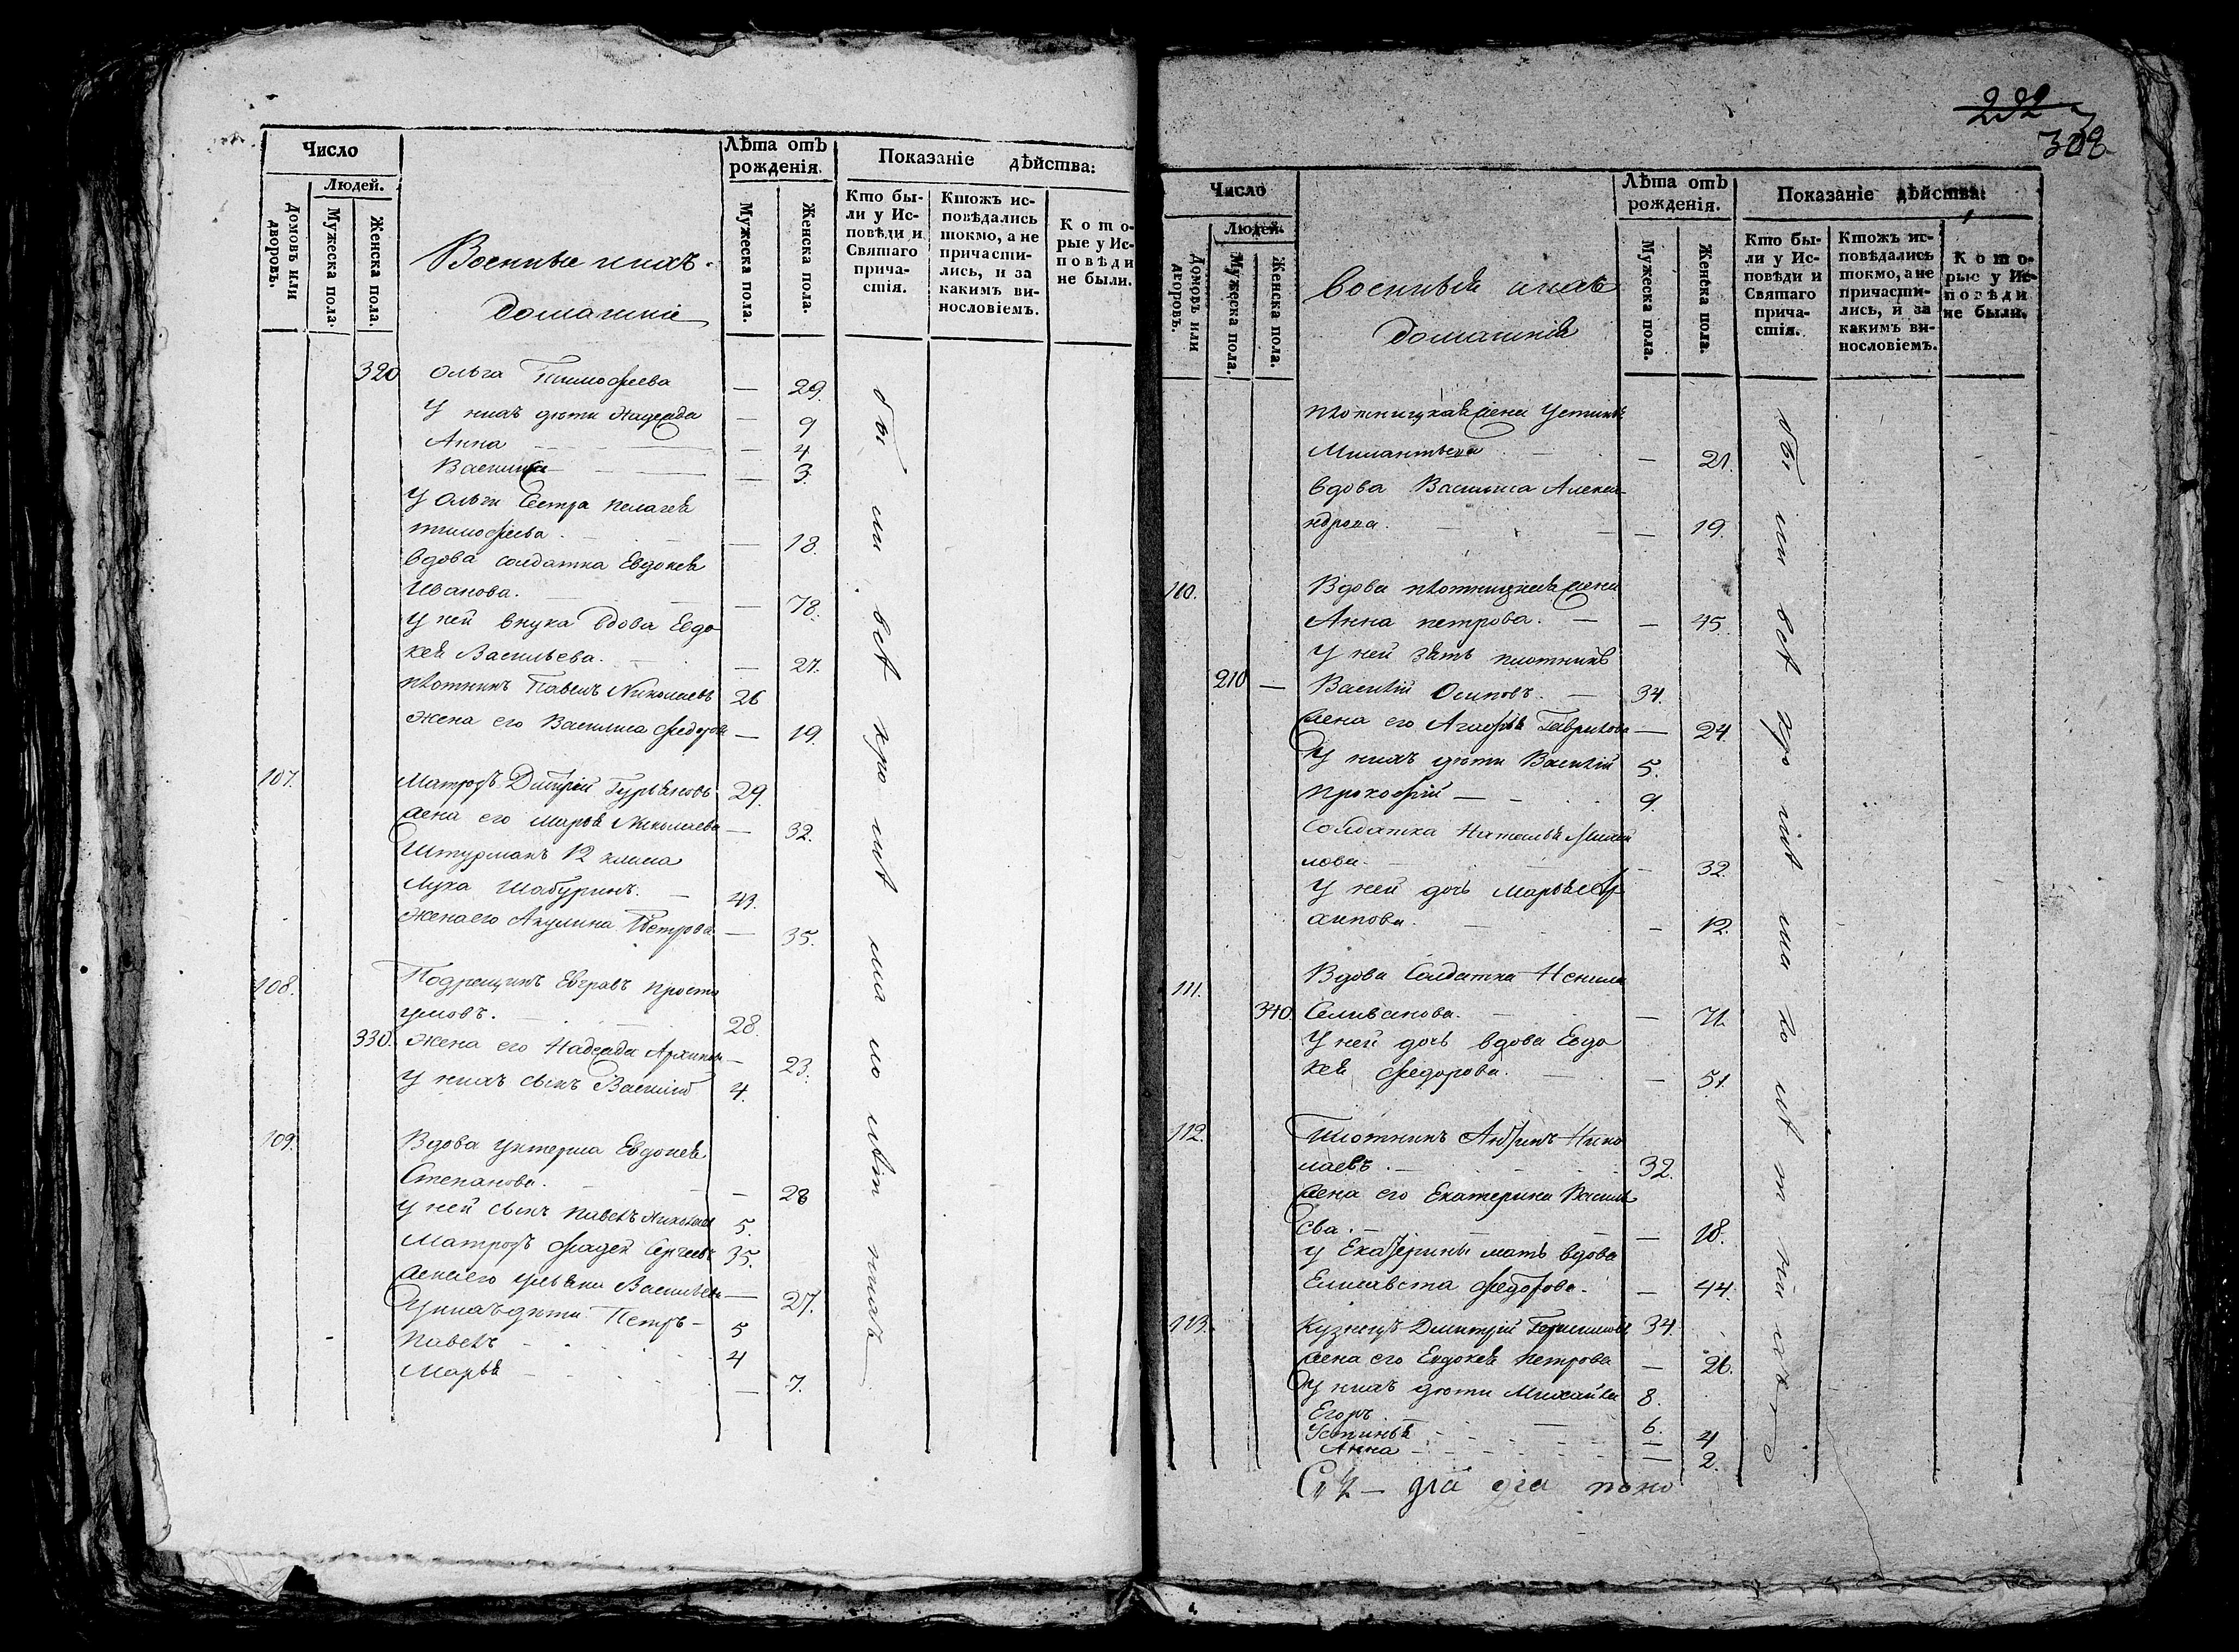 Число
Людей.
Домовъ или дворовъ.
Мужеска пола.
Женска пола.
Военные ихъ
домашніе
Лѣта отъ рожденія.
Мужеска пола.
Женска пола.
Показаніе дѣйства:
Кто были у Исповѣди и Святаго причастія.
Ктожъ исповѣдались токмо, а не причастились, и за какимъ винословіемъ.
Которые у Исповѣди не были.
320 Ольга Тимофеева — 29.
У нихъ дѣти Надежда — 9
Анна — 4
Василиса — 3.
У Ольги Сестра Пелагея
Тимофеева. — 18.
вдова солдатка Евдокея
Иванова. — 78.
У ней внука вдова Евдо
кея Васильева. — 27.
плотникъ Павелъ Николаевъ 26
Жена его Василиса Федорова — 19.
107. Матрозъ Дмитрей Гурьяновъ 29.
Жена его Марья Николаева — 32.
Штурманъ 12 класса
Лука Шабуринъ. 43.
Жена его Акулина Петрова — 35.
108. Подрещикъ Евгравъ Просто
умовъ. 28.
330. Жена его Надежда Архипова — 23.
У нихъ сынъ Василій 4.
109. Вдова унтерша Евдокея
Степанова. — 28
У ней сынъ Павелъ Николаевъ 5.
Матрозъ Фадей Сергеевъ 35.
Жена его Ульяна Васильева — 27.
У нихъ дѣти Петръ — 5
Павелъ 4
Марья — 7.
232
308
Число
Людей.
Домовъ или дворовъ.
Мужеска пола.
Женска пола.
Военныя ихъ
домашнія
Лѣта отъ рожденія.
Мужеска пола.
Женска пола.
Показаніе дѣйства:
Кто были у Исповѣди и Святаго причастія.
Ктожъ исповѣдались токмо, а не причастились, и за какимъ винословіемъ.
Которые у Исповѣди не были.
плотницкая жена Устинья
— 21.
вдова Василиса Алекса
ндрова. — 19.
110. Вдова плотницкая жена
Анна петрова. — 45.
У ней зять плотникъ
210 — Василій Осиповъ. — 34.
Жена его Агафья Гаврилова — 24.
У нихъ дѣти Василій 5.
Прокофій — 9.
Солдатка Наталья Михаи
лова. — 32.
У ней дочь Марья
хипова. — 12.
111. Вдова Солдатка Ненила
340. Селиванова. — 71.
У ней дочь вдова Евдо
кея Федорова. — 51.
112. Плотникъ Андрей Нико
лаевъ. 32.
Жена его Екатерина Василь
ева. — 18.
у Екатерины мать вдова
Елисавета Федорова. — 44.
113. Кузнецъ Дмитрій Герасимовъ 34.
Жена его Евдокея Петрова — 26.
У нихъ дѣти Михайла 8.
Егоръ 6.
Устинья — 4
Анна — 2.